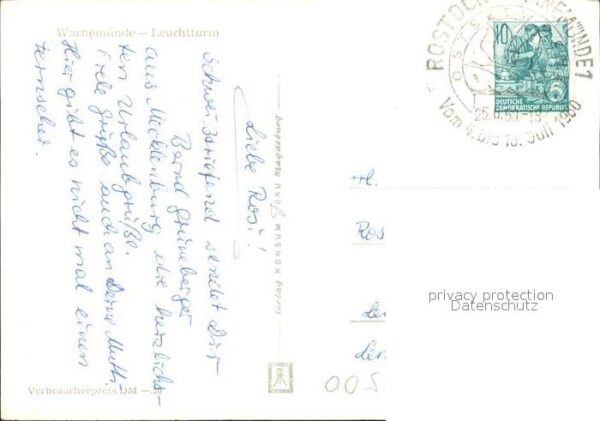 Warnemünde – Leuchtturm
Liebe Rosi!
Schweißtriefend sendet Dir
Bernd Grüneberger
aus Mecklenburg die herzlichs-
ten Urlaubsgrüße.
Viele Grüße auch an Deine Mutti.
Hier gibt es nicht mal einen
Fernseher.
Verbraucherpreis DM
ROSTOCK
Vom 4. bis 10. Juli 1960
10
DEUTSCHE
DEMOKRATISCHE REPUBLIK
Frl.
Ros
privacy protection
Datenschutz
500